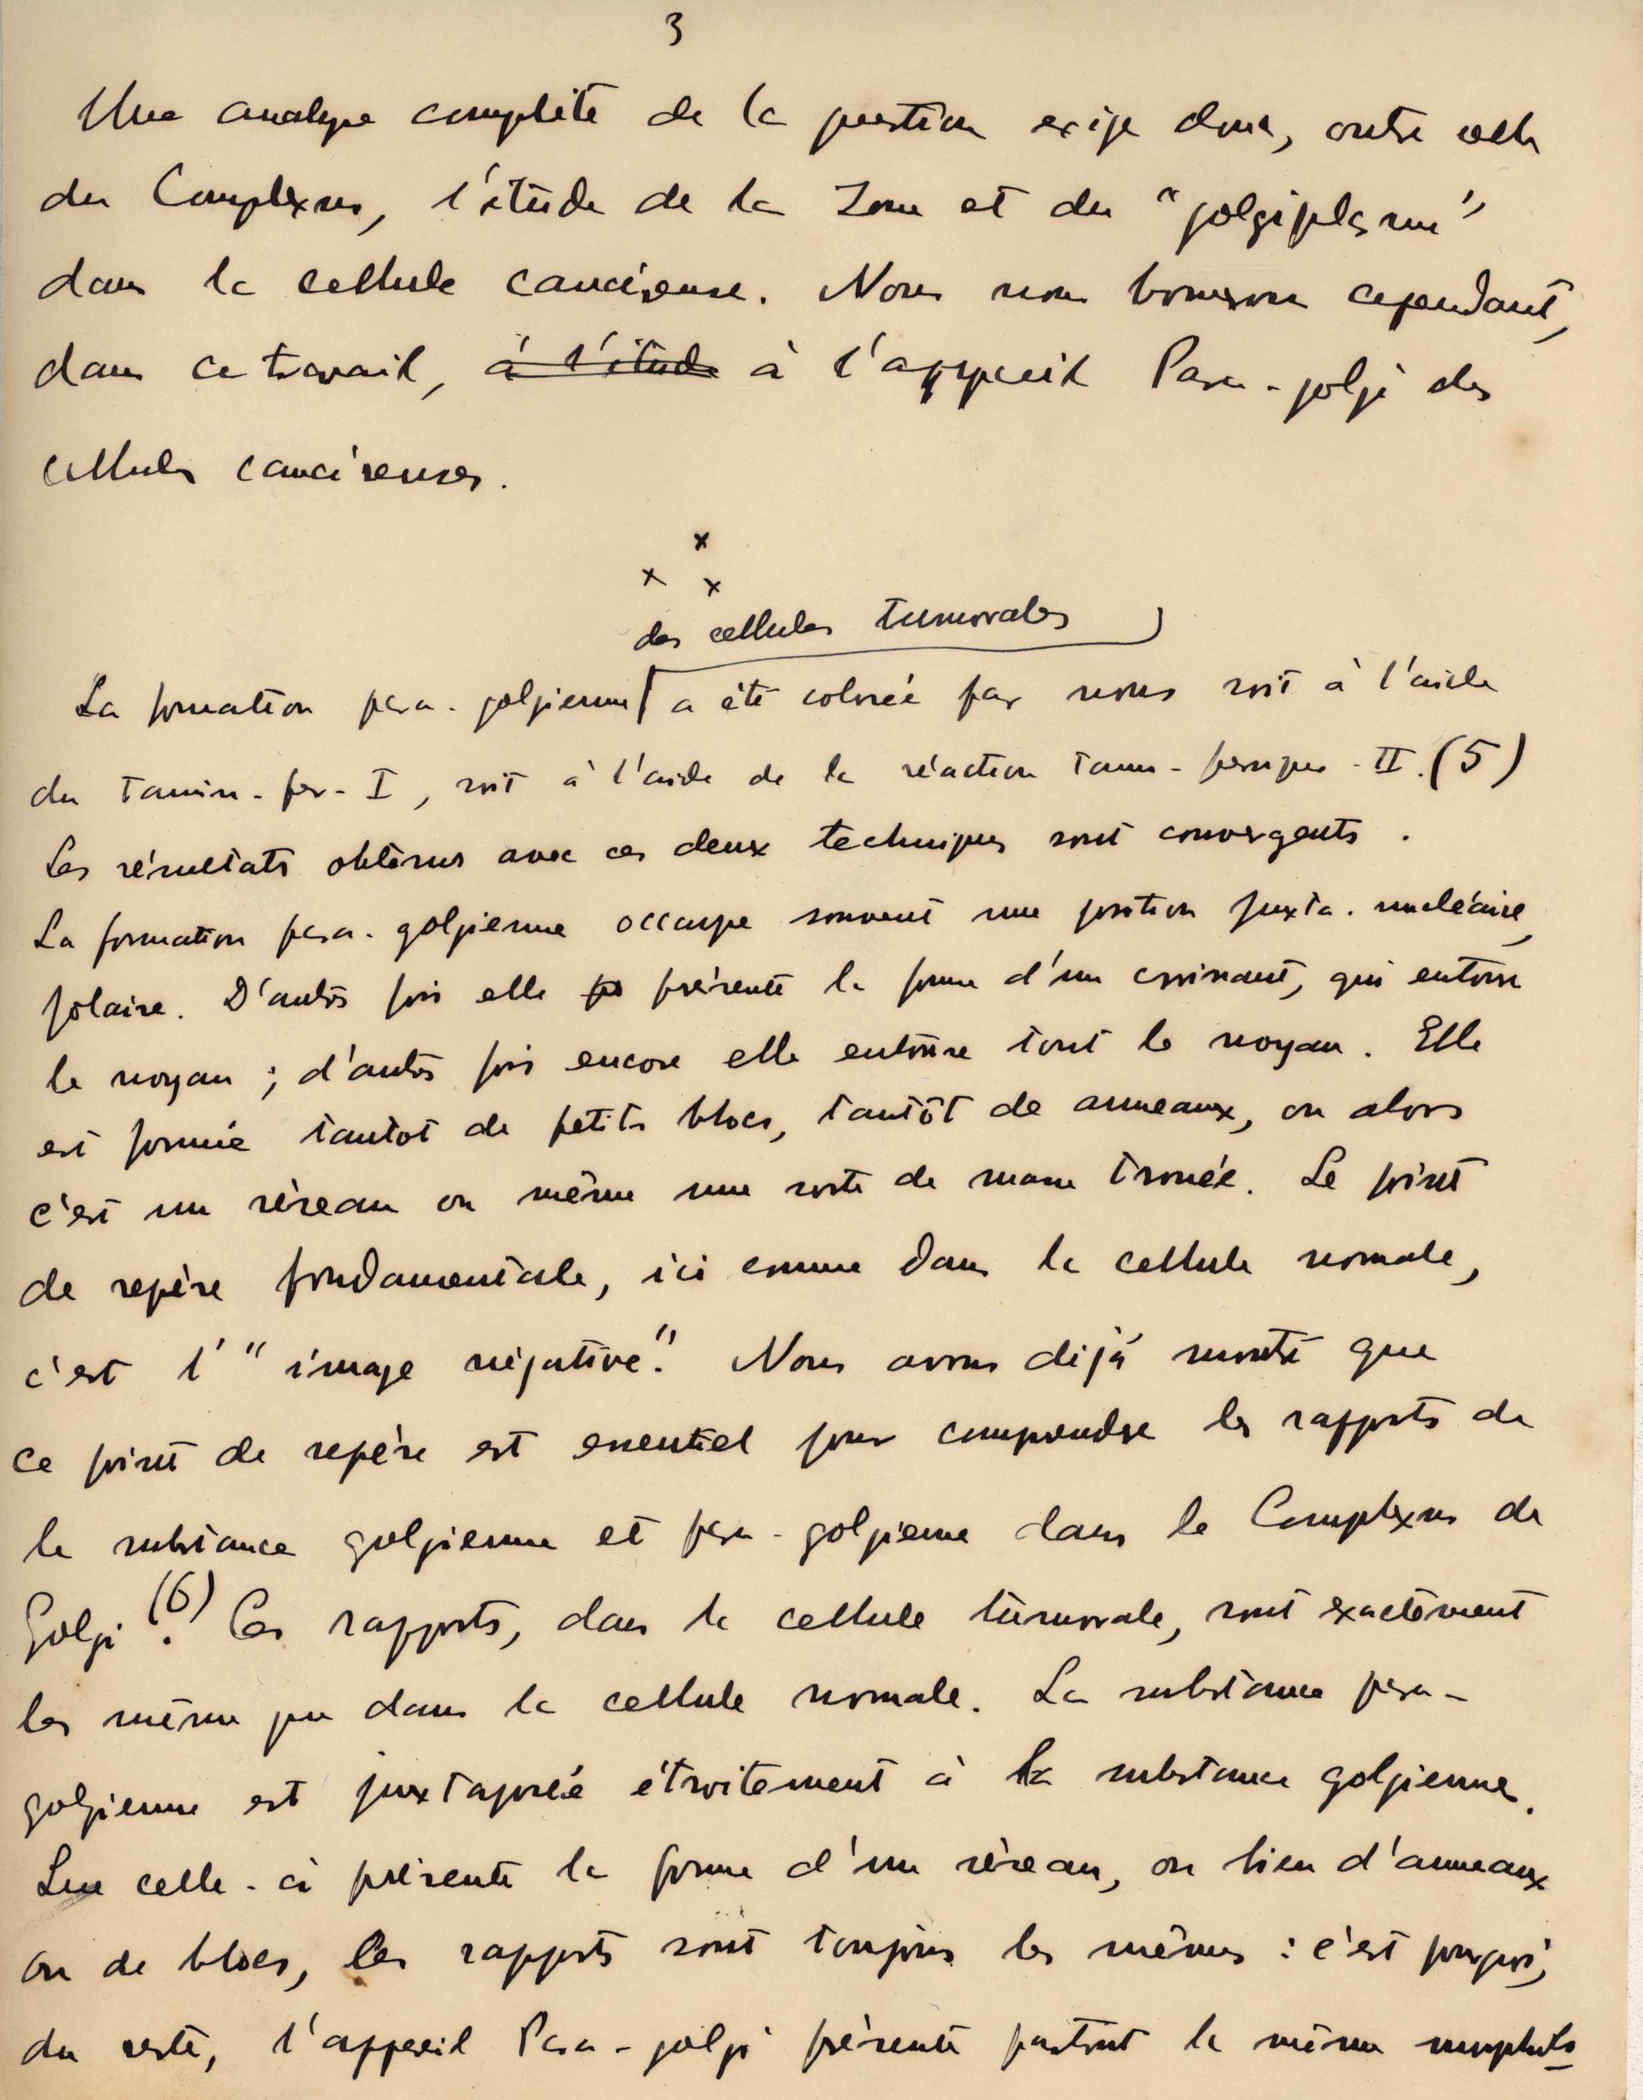 3
Une analyse complète de la question exige donc, outre celle
du Complexus, l'étude de la Zone et du "golgiplasme"
dans la cellule cancéreuse. Nous nous bornerons cependant,
dans ce travail, à l'étude à l'appareil Para-golgi des
cellules cancéreuses.
x
x x
des cellules tumorales
La formation para-golgienne a été colorée par nous soit à l'aide
du Tannin-fer-I, soit à l'aide de la réaction Tanno-ferrique-II. (5)
Les résultats obtenus avec ces deux techniques sont convergents.
La formation para-golgienne occupe souvent une position juxta-nucléaire,
polaire. D'autres fois elle présente la forme d'un croissant, qui entoure
le noyau ; d'autres fois encore elle entoure tout le noyau. Elle
est formée tantot de petits blocs, tantôt de anneaux, ou alors
c'est un réseau ou même une sorte de masse trouée. Le point
de repère fondamentale, ici comme dans la cellule normale,
c'est l'"image négative". Nous avons déjà montré que
ce point de repère est essentiel pour comprendre les rapports de
la substance golgienne et para-golgienne dans le Complexus de
Golgi (6). Ces rapports, dans la cellule tumorale, sont exactement
les mêmes que dans la cellule normale. La substance para-
golgienne est juxtaposée étroitement à la substance golgienne.
Que celle-ci présente la forme d'un réseau, ou bien d'anneaux
ou de blocs, les rapports sont toujours les mêmes : c'est pourquoi,
du reste, l'appareil Para-golgi présente partout la même morpholo